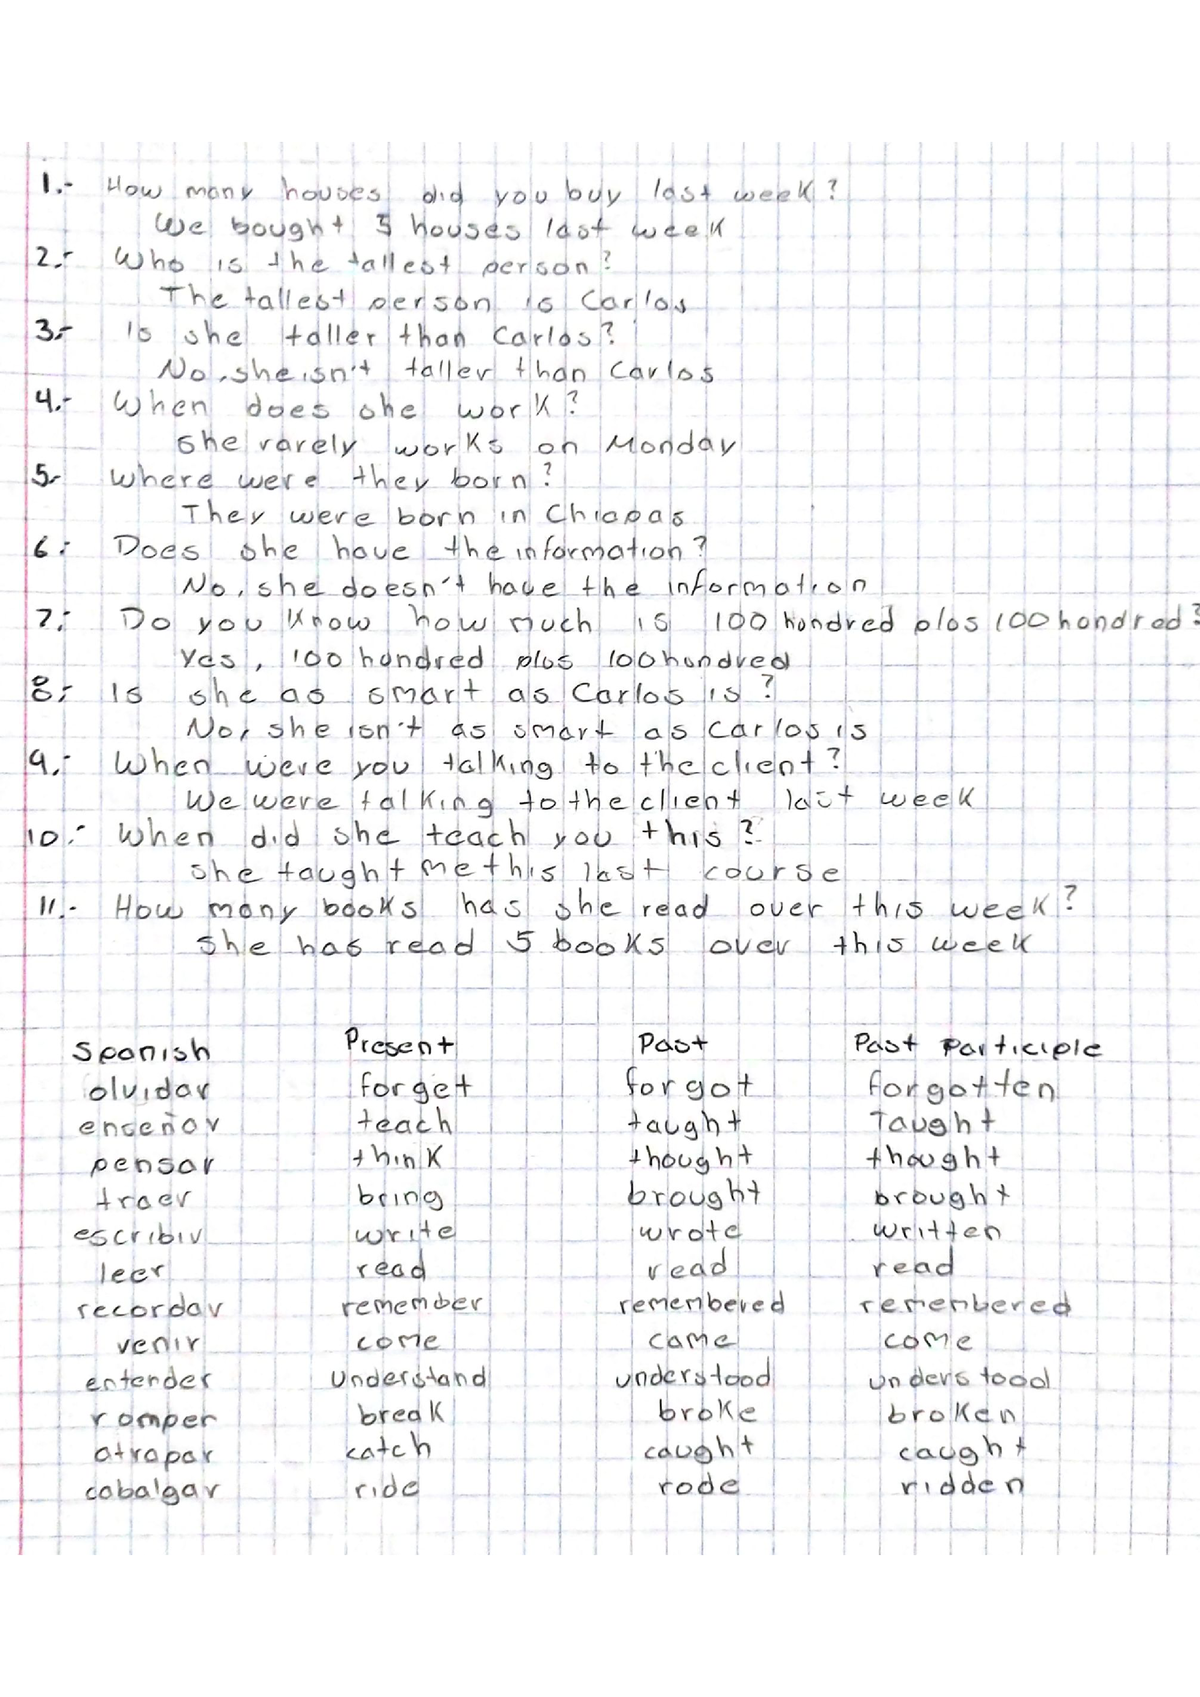 1.- How many houses did you buy last week?
We bought 3 houses last week
2.- Who is the tallest person?
The tallest person is Carlos
3.- Is she taller than Carlos?
No, she isn't taller than Carlos
4.- When does she work?
She rarely works on Monday
5.- Where were they born?
They were born in Chiapas
6.- Does she have the information?
No, she doesn't have the information
7.- Do you know how much is 100 hundred plos 100 hondred?
Yes, 100 hundred plus 100 hundred
8.- Is she as smart as Carlos is?
No, she isn't as smart as Carlos is
9.- When were you talking to the client?
We were talking to the client last week
10.- When did she teach you this?
She taught me this last course
11.- How many books has she read over this week?
She has read 5 books over this week
Spanish Present Past Past Participle
olvidar forget forgot forgotten
enseñar teach taught Taught
pensar think thought thought
traer bring brought brought
escribir write wrote written
leer read read read
recordar remember remenbered remenbered
venir come came come
entender understand understood understood
romper break broke broken
atrapar catch caught caught
cabalgar ride rode ridden